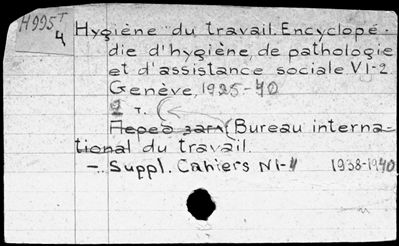 H995 T
4
Hygiène du travail. Encyclopé-
die d'hygiène, de pathologie
et d'assistance sociale. V 1-2.
Genève, 1925-40
2 т.
Перед загл.: Bureau interna-
tional du travail.
- Suppl. Cahiers N 1-4 1938-1940